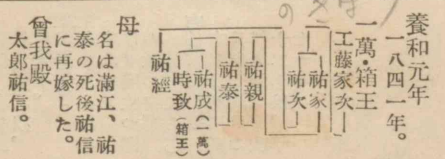 養和元年
一八四一年。
一萬・箱王
工藤家次
祐家
祐次
祐親
祐泰
祐成(一萬)
時致(箱王)
祐經
母
名は滿江、祐
泰の死後祐信
に再嫁した。
曾我殿
太郎祐信。